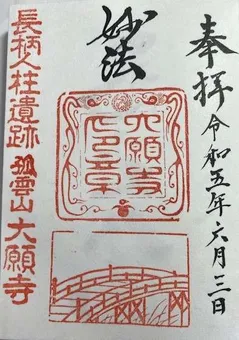 奉拝
令和五年六月三日
妙法
大願寺
印章
長柄人柱遺跡 孤雲山 大願寺